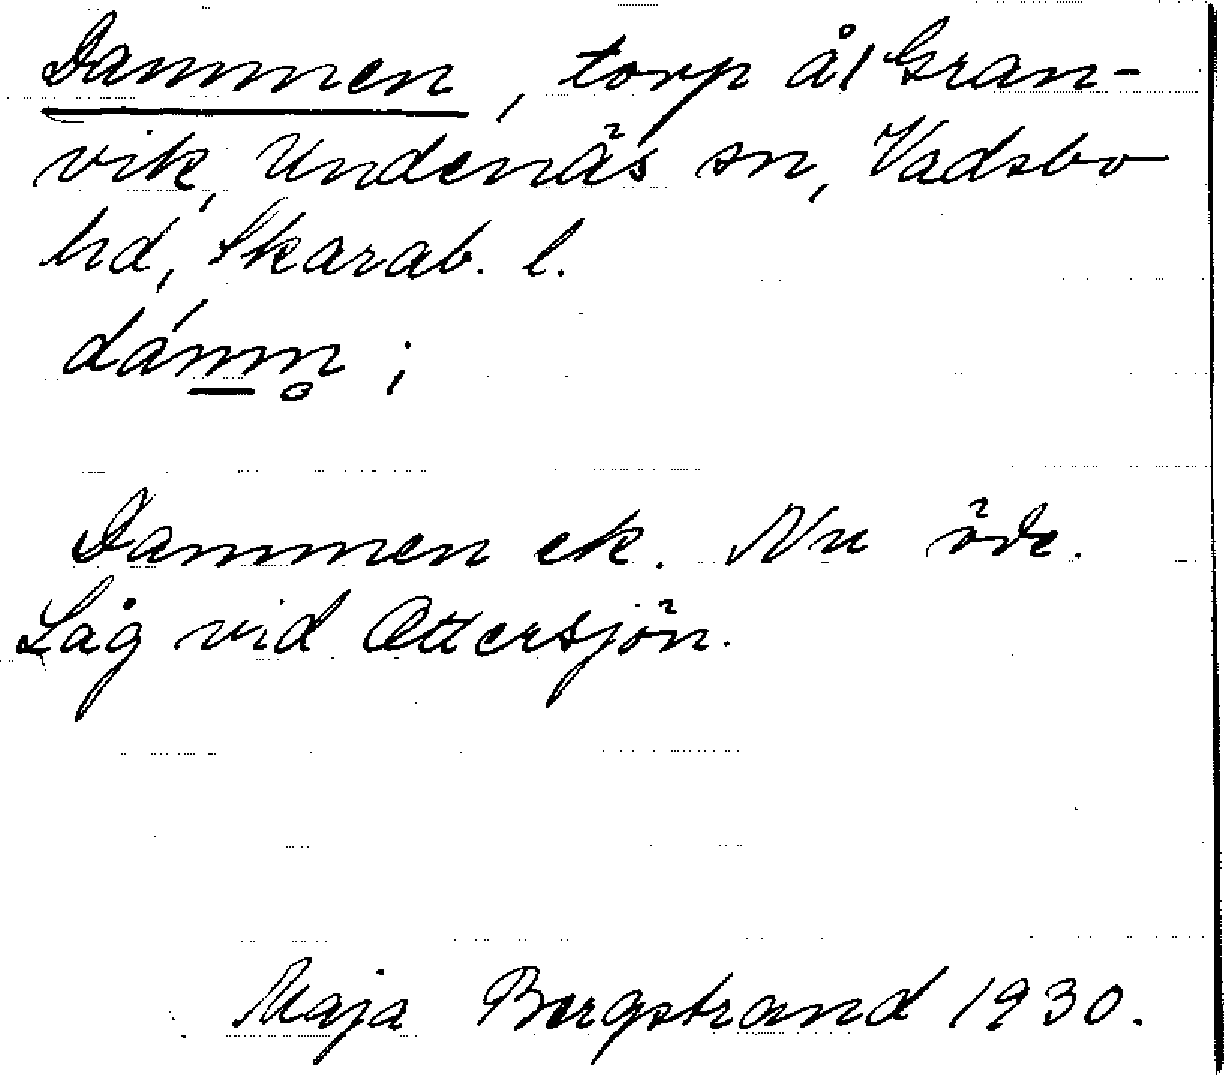 Dammen, torp å 1 Gran-
vik, Undenäs sn, Vadsbo
hd, Skarab. l.
dámn̥ ;
Dammen ek. Nu öde.
Låg vid Ottersjön.
Maja Bergstrand 1930.